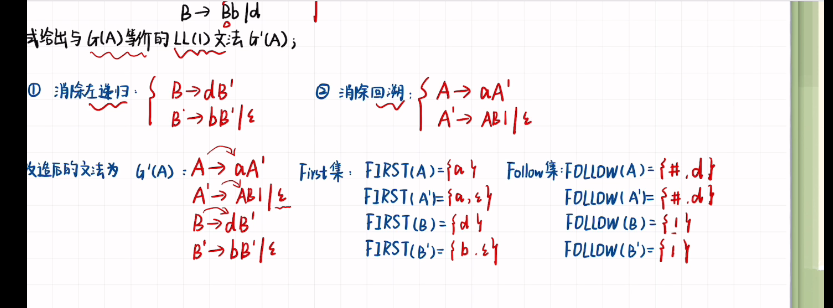 B→ Bb|d
试给出与G(A)等价的LL(1)文法 G'(A);
① 消除左递归: { B→dB'
B'→bB'|ε
② 消除回溯: { A→aA'
A'→ABl|ε
改造后的文法为 G'(A): A→aA'
A'→ABl|ε
B→dB'
B'→bB'|ε
First集: FIRST(A)={a}
FIRST(A')={a,ε}
FIRST(B)={d}
FIRST(B')={b.ε}
Follow集:FOLLOW(A)={#,d}
FOLLOW(A')={#.d}
FOLLOW(B)={l}
FOLLOW(B')={l}